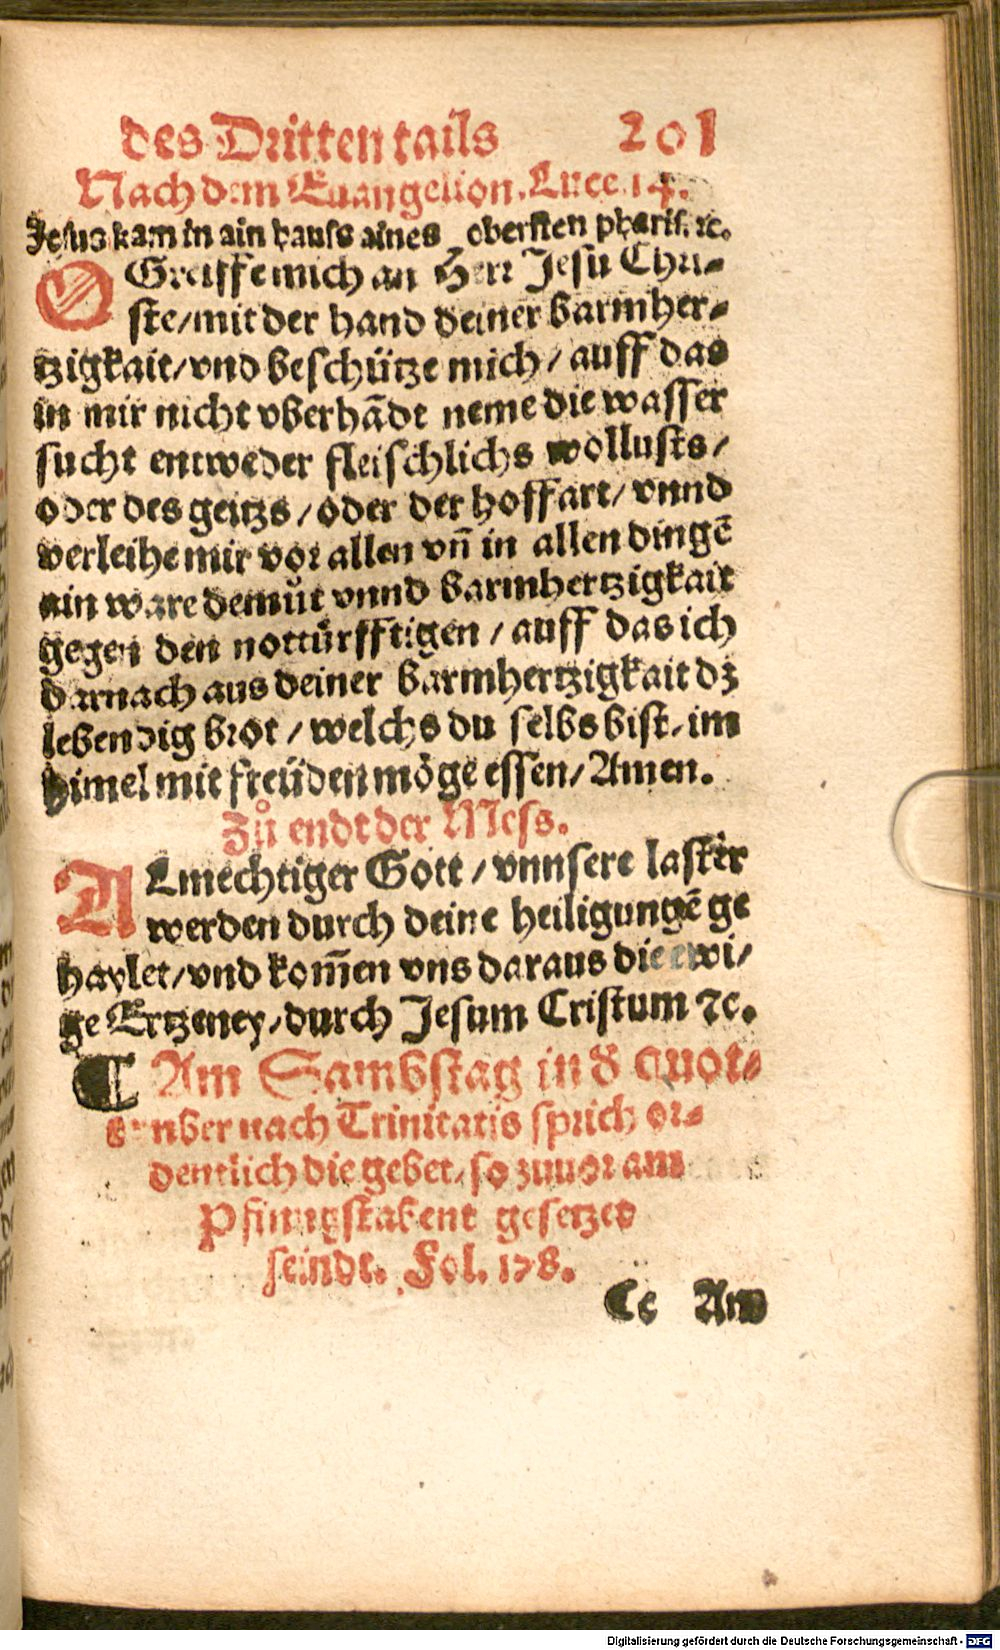 des Dritten tails 201
Nach dem Euangelion. Luce. 14.
Jesus kam in ain hauss aines obersten pharis. ꝛc.
O Greiffe mich an Herr Jesu Chri-
ste/mit der hand deiner barmher-
tzigkait/vnd beschütze mich/auff das
in mir nicht vberhãdt neme die wasser
sucht entweder fleischlichs wollusts/
oder des geitzs/oder der hoffart/vnnd
verleihe mir vor allen vñ in allen dingẽ
ain ware demůt vnnd barmhertzigkait
gegen den nottürfftigen/auff das ich
darnach aus deiner barmhertzigkait dz
lebendig brot/welchs du selbs bist, im
himel mit freüden möge essen/Amen.
Zů endt der Mess.
ALmechtiger Gott/vnnsere laster
werden durch deine heiligungẽ ge
haylet/vnd kom̃en vns daraus die ewi/
ge Ertzeney/durch Jesum Cristum ꝛc.
¶ Am Sambstag in d quot-
ember nach Trinitatis sprich or-
dentlich die gebet, so zuuor am
Pfinngstabent gesetzed
seindt. Fol. 178.
Cc Am